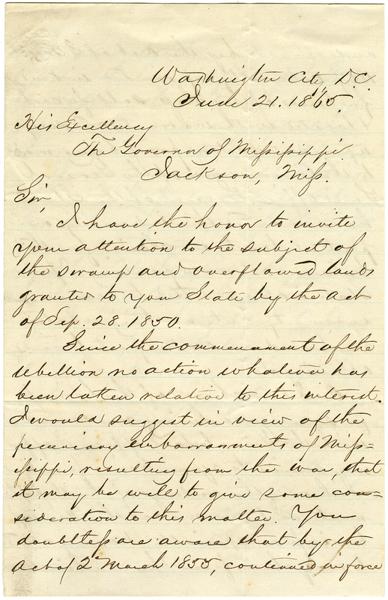 Washington City, D.C.
June 21. 1865.
His Excellency
The Governor of Mississippi
Jackson, Miss.
Sir,
I have the honor to invite
your attention to the subject of
the swamp and overflowed lands
granted to your State by the act
of Sep. 28. 1850.
Since the commencement of the
rebellion no action whatever has
been taken relative to this interest.
I would suggest in view of the
pecuniary embarrassments of Miss-
issippi, resulting from the war, that
it may be well to give some con-
sideration to this matter. You
doubtless are aware that by the
Act of 2d March 1855, continued in force